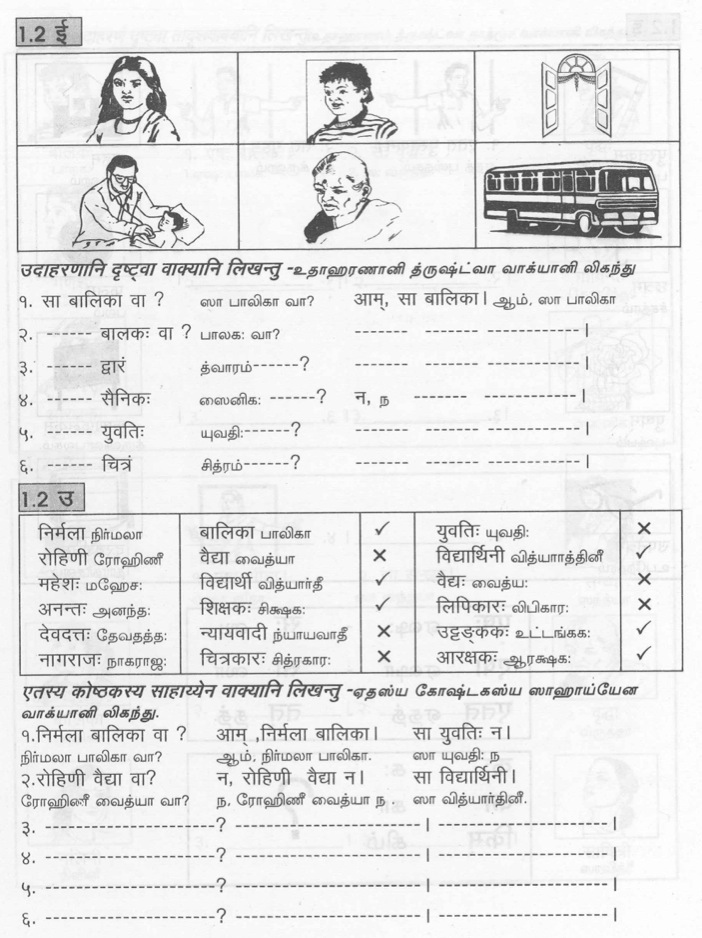 1.2 ई
उदाहरणानि दृष्ट्वा वाक्यानि लिखन्तु -உதாஹரணானி த்ருஷ்ட்வா வாக்யானி லிகந்து
१. सा बालिका वा ? ஸா பாலிகா வா? आम्, सा बालिका। ஆம். ஸா பாலிகா
२. ------- बालकः वा ? பாலக: வா? ------- ------- ------------।
३. ------ द्वारं த்வாரம்------? ------- ------- ------------।
४. ------ सैनिकः ஸைனிக: ------? न, ந ------- ------------।
५. ------ युवतिः யுவதி:------? ------- ------- ------------।
६. ------ चित्रं சித்ரம்------? ------- ------- ------------।
1.2 उ
निर्मला நிர்மலா बालिका பாலிகா ✓ युवतिः யுவதி: ×
रोहिणी ரோஹிணீ वैद्या வைத்யா × विद्यार्थिनी வித்யாாத்தினீ ✓
महेशः மஹேச: विद्यार्थी வித்யார்தீ ✓ वैद्यः வைத்ய: ×
अनन्तः அனந்த: शिक्षकः சிக்ஷக: ✓ लिपिकारः லிபிகார: ×
देवदत्तः தேவதத்த: न्यायवादी ந்யாயவாதீ × उट्टङ्ककः உட்டங்கக: ✓
नागराजः நாகராஜ: चित्रकारः சித்ரகார: × आरक्षकः ஆரக்ஷக: ✓
एतस्य कोष्ठकस्य साहाय्येन वाक्यानि लिखन्तु -ஏதஸ்ய கோஷ்டகஸ்ய ஸாஹாய்யேன
வாக்யானி லிகந்து.
१.निर्मला बालिका वा ? आम् ,निर्मला बालिका। सा युवतिः न।
நிர்மலா பாலிகா வா? ஆம், நிர்மலா பாலிகா. ஸா யுவதி: ந
२.रोहिणी वैद्या वा? न, रोहिणी वैद्या न। सा विद्यार्थिनी।
ரோஹிணீ வைத்யா வா? ந. ரோஹிணீ வைத்யா ந . ஸா வித்யார்தினீ.
३. -----------------------? -------------------------। -----------------------।
४. -----------------------? -------------------------। -----------------------।
५. -----------------------? -------------------------। -----------------------।
६. -----------------------? -------------------------। -----------------------।